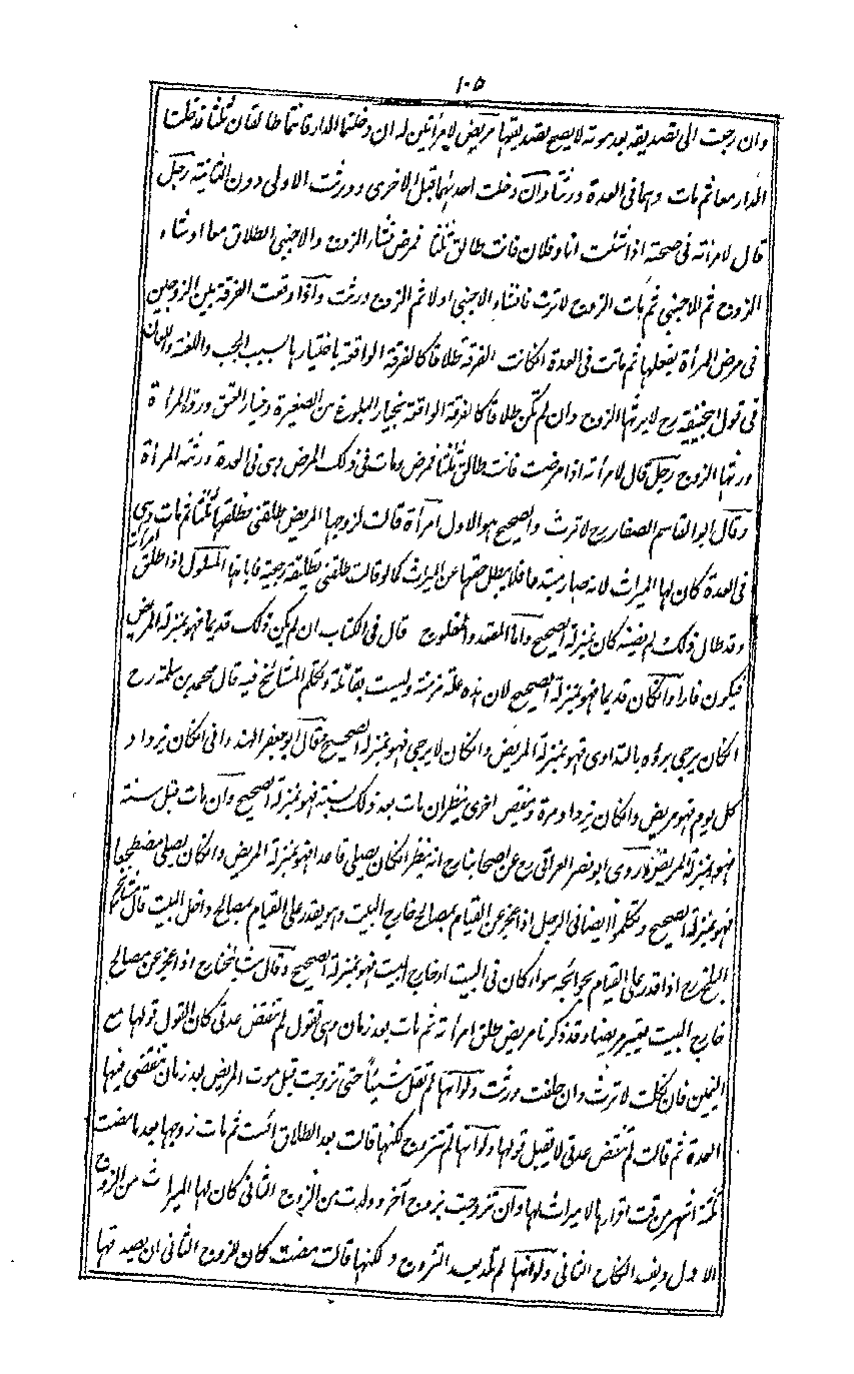 ١٠٥
وان رجعت الى تصديقه بعد موته لا يصح تصديقها مريض لامرأتين له ان دخلتما الدار فانتما طالقان ثلثا فدخلتا
الدار معا ثم مات وهما فى العدة ورثتا وان دخلت احدىهما قبل الاخرى وورثت الاولى دون الثانية رجل
قال لامرأته فى صحته اذا شئت انا وفلان فانت طالق ثلثا فمرض فشاء الزوج والاجنبى الطلاق معا او شاء
الزوج ثم الاجنبى ثم مات الزوج لا ترث فان شاء الاجنبى اولا ثم الزوج ورثت واذا وقعت الفرقة بين الزوجين
فى مرض المرأة بفعلها ثم ماتت فى العدة انكانت الفرقة طلاقا كالفرقة الواقعة باختيارها بسبب الجب والعنة واللعان
فى قول ابيحنيفة رح لا يرثها الزوج وان لم تكن طلاقا كالفرقة الواقعة بخيار البلوغ من الصغيرة وخيار العتق وردة المرأة
ورثها الزوج رجل قال لامرأته اذا مرضت فانت طالق ثلثا فمرض ومات فى ذلك المرض وهى فى العدة ورثته المرأة
وقال ابو القاسم الصفار رح لا ترث والصحيح هو الاول امرأة قالت لزوجها المريض طلقنى فطلقها ثلثا ثم مات وهى
فى العدة كان لها الميراث لانه صار مبتدءا فلا يبطل حقها عن الميراث كما لو قالت طلقنى تطليقة رجعية فابانها المسلول اذا طلق امرأته
وقد طال ذلك لم يضنه كان بمنزلة الصحيح واما المقعد والمفلوج قال فى الكتاب ان لم يكن ذلك قديما فهو بمنزلة المريض
فيكون فارا وانكان قديما فهو بمنزلة الصحيح لان هذه علة مزمنة وليست بقاتلة وتكلم المشائخ فيه قال محمد بن سلمة رح
انكان يرجى برؤه بالتداوى فهو بمنزلة المريض وانكان لا يرجى فهو بمنزلة الصحيح وقال ابو جعفر الهندوانى انكان يزداد
كل يوم فهو مريض وانكان يزداد مرة وينقص اخرى ينظر ان مات بعد ذلك بسنة فهو بمنزلة الصحيح وان مات قبل سنة
فهو بمنزلة المريض وروى ابو نصر العراقى رح عن اصحابنا رح انه ينظر انكان يصلى قاعدا فهو بمنزلة المريض وانكان يصلى مضطجعا
فهو بمنزلة الصحيح وتكلموا ايضا فى الرجل اذا عجز عن القيام بمصالح خارج البيت وهو يقدر على القيام بمصالح داخل البيت قال مشائخ
البلخ رح اذا قدر على القيام بحوائجه سواء كان فى البيت او خارج البيت فهو بمنزلة الصحيح وقال مشائخنا رح اذا عجز عن مصالح
خارج البيت يعتبر مريضا وقد ذكرنا مريض طلق امرأته ثم مات بعد زمان وهى تقول لم تنقض عدتى كان القول قولها مع
اليمين فان نكلت لا ترث وان حلفت ورثت ولو انها لم تقل شيئا حتى تزوجت قبل موت المريض بعد زمان تنقضى فيها
العدة ثم قالت لم تنقض عدتى لا يقبل قولها ولو انها لم تتزوج لكنها قالت بعد الطلاق ائست ثم مات زوجها بعد ما مضت
ثلثة اشهر من وقت اقرارها لا ميراث لها وان تزوجت بزوج آخر وولدت من الزوج الثانى كان لها الميراث من الزوج
الاول ويفسد النكاح الثانى ولو انها لم تلد بعد التزوج ولكنها قالت مضت كان للزوج الثانى ان يصدقها